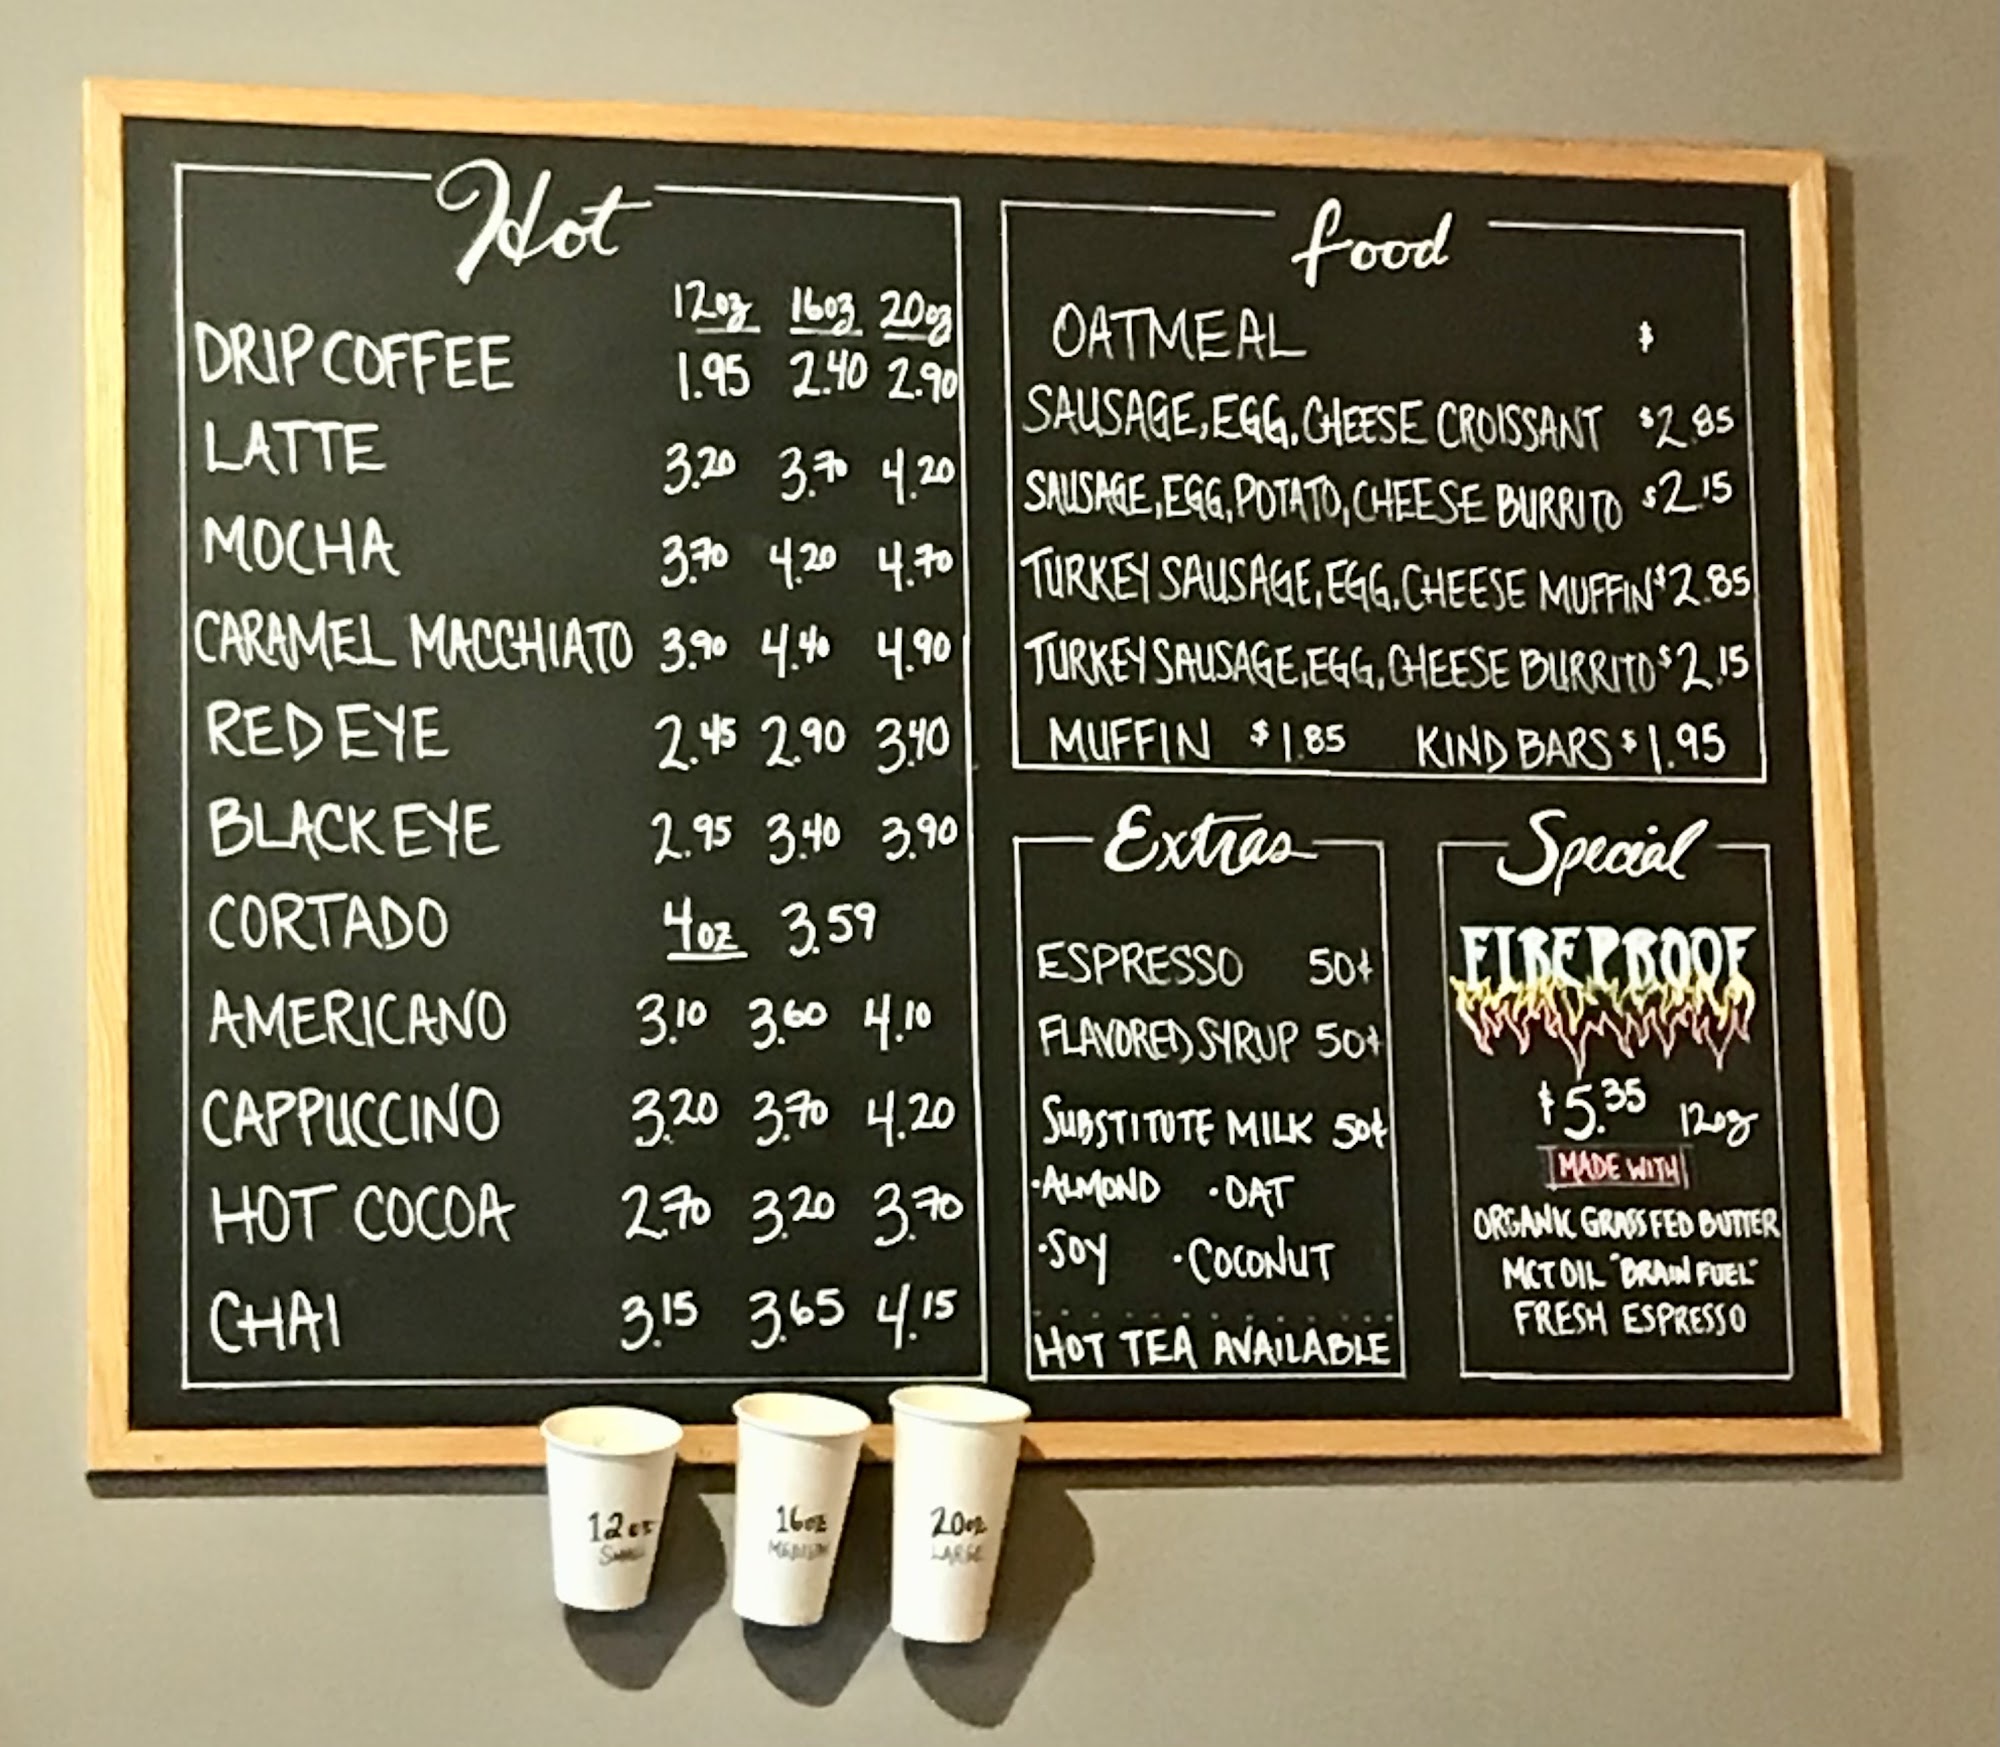 Hot
12oz 16oz 20oz
DRIP COFFEE 1.95 2.40 2.90
LATTE 3.20 3.70 4.20
MOCHA 3.70 4.20 4.70
CARAMEL MACCHIATO 3.90 4.40 4.90
RED EYE 2.45 2.90 3.40
BLACK EYE 2.95 3.40 3.90
CORTADO 4oz 3.59
AMERICANO 3.10 3.60 4.10
CAPPUCCINO 3.20 3.70 4.20
HOT COCOA 2.70 3.20 3.70
CHAI 3.15 3.65 4.15
food
OATMEAL $
SAUSAGE, EGG, CHEESE CROISSANT $2.85
SAUSAGE, EGG, POTATO, CHEESE BURRITO $2.15
TURKEY SAUSAGE, EGG, CHEESE MUFFIN $2.85
TURKEY SAUSAGE, EGG, CHEESE BURRITO $2.15
MUFFIN $1.85 KIND BARS $1.95
Extras
ESPRESSO 50¢
FLAVORED SYRUP 50¢
SUBSTITUTE MILK 50¢
·ALMOND ·OAT
·SOY ·COCONUT
HOT TEA AVAILABLE
Special
FIREPROOF
$5.35 12oz
MADE WITH
ORGANIC GRASS FED BUTTER
MCT OIL "BRAIN FUEL"
FRESH ESPRESSO
12oz
SMALL
16oz
MEDIUM
20oz
LARGE